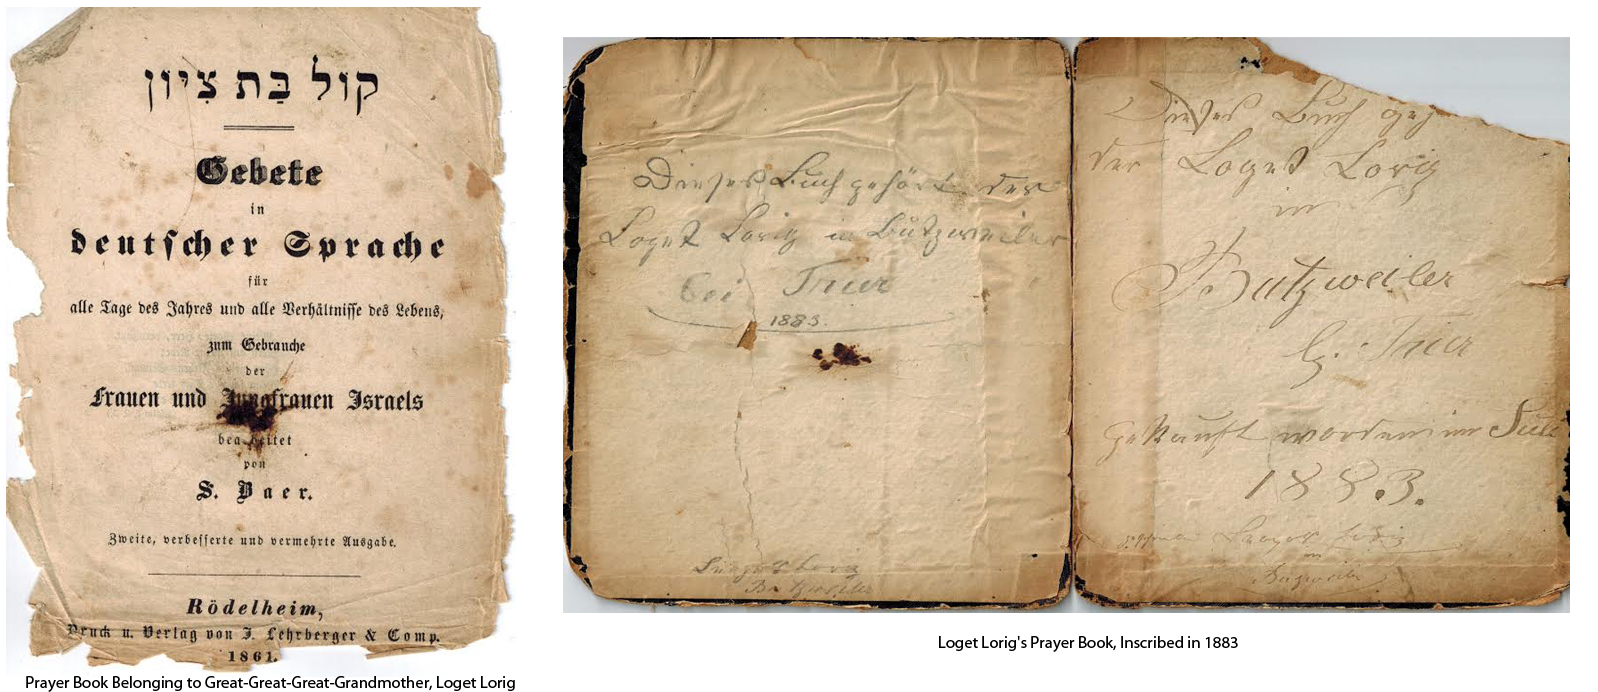 קול בַּת צִיּוֹן
Gebete
in
deutscher Sprache
für
alle Tage des Jahres und alle Verhältnisse des Lebens,
zum Gebrauche
der
Frauen und Jungfrauen Israels
bearbeitet
von
S. Baer.
Zweite, verbesserte und vermehrte Ausgabe.
Rödelheim,
Druck u. Verlag von J. Lehrberger & Comp.
1861.
Prayer Book Belonging to Great-Great-Great-Grandmother, Loget Lorig
Dieses Buch gehört der
Loget Lorig in Butzweiler
bei Trier
1883.
Lorig
Butzweiler
Dieses Buch geh
der Loget Lorig
in
Butzweiler
b. Trier
gekauft worden im Juli
1883.
Lorig
in
Butzweiler
Loget Lorig's Prayer Book, Inscribed in 1883